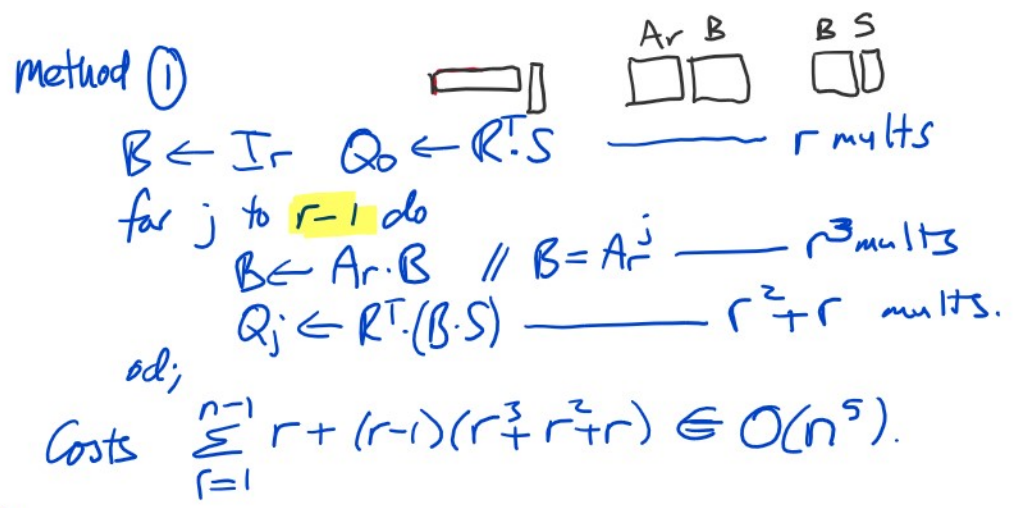 Ar B B S
method ①
B ← Ir Q₀ ← Rᵀ·S —— r mults
for j to r-1 do
B ← Ar·B // B = Arʲ —— r³ mults
Qj ← Rᵀ·(B·S) —— r²+r mults.
od;
Costs Σ_{r=1}^{n-1} r + (r-1)(r³+r²+r) ∈ O(n⁵).